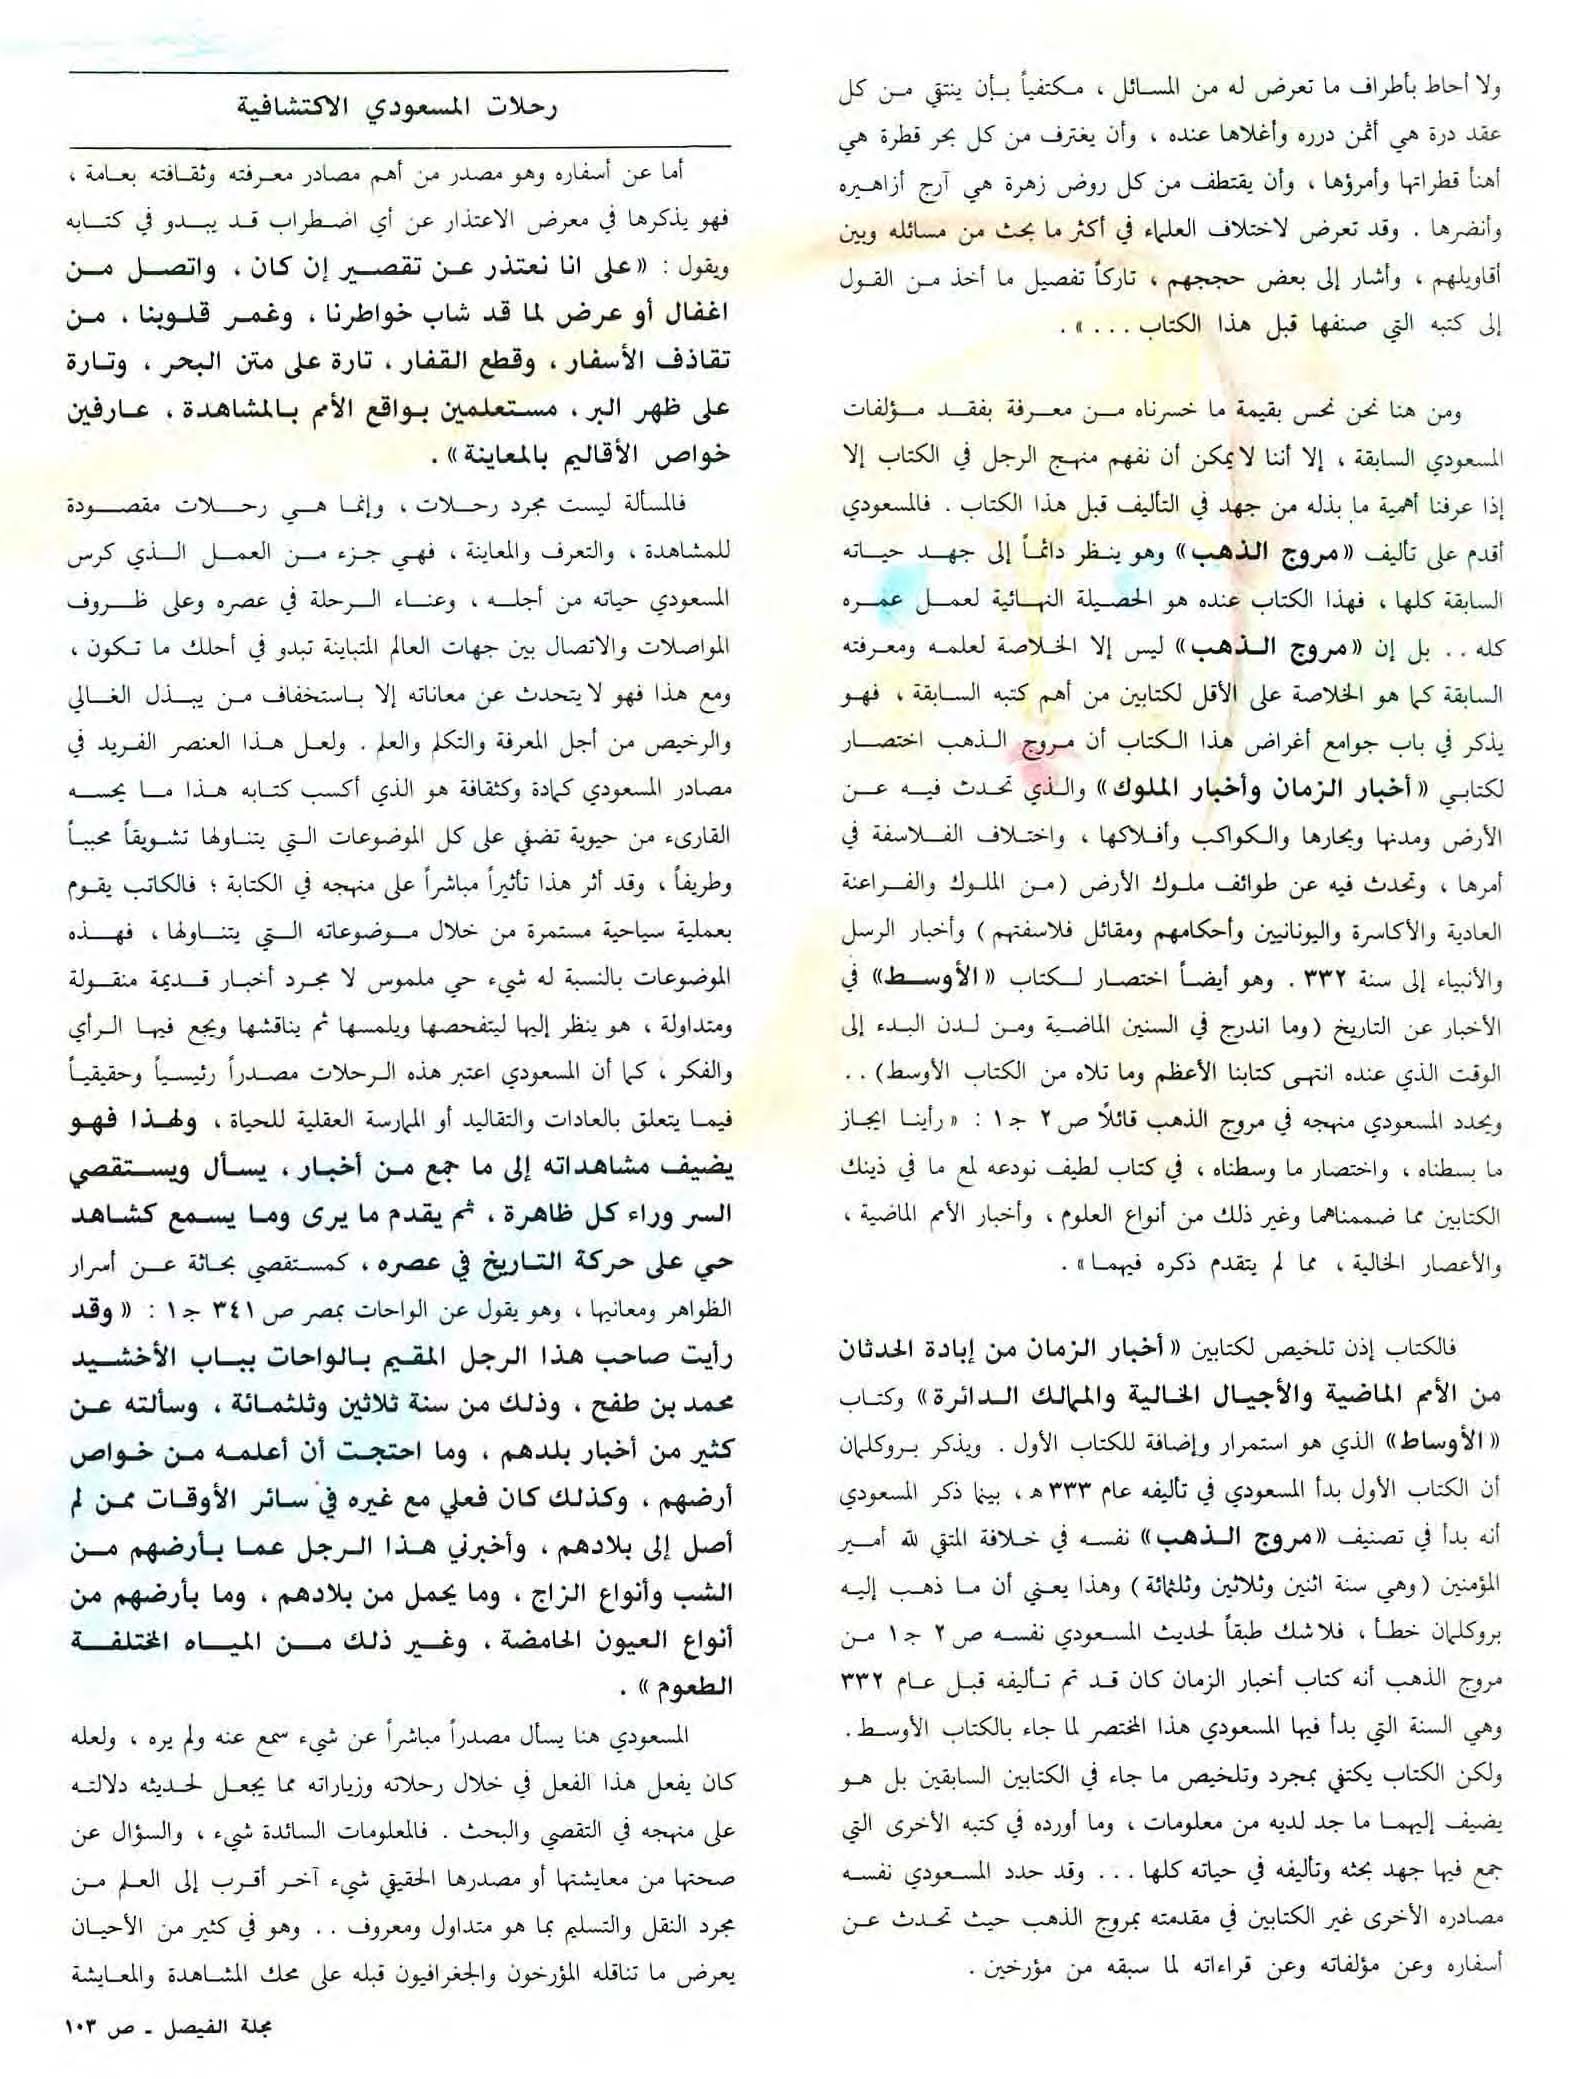 ولا أحاط بأطراف ما تعرض له من المسائل ، مكتفياً بأن ينتقي من كل
عقد درة هي أثمن درره وأغلاها عنده ، وأن يغترف من كل بحر قطرة هي
أهنأ قطراتها وأمرؤها ، وأن يقتطف من كل روض زهرة هي آرج أزاهيره
وأنضرها . وقد تعرض لاختلاف العلماء في أكثر ما بحث من مسائله وبين
أقاويلهم ، وأشار إلى بعض حججهم ، تاركاً تفصيل ما أخذ من القول
إلى كتبه التي صنفها قبل هذا الكتاب ... » .
ومن هنا نحن نحس بقيمة ما خسرناه من معرفة بفقد مؤلفات
المسعودي السابقة ، إلا أننا لا يمكن أن نفهم منهج الرجل في الكتاب إلا
إذا عرفنا أهمية ما بذله من جهد في التأليف قبل هذا الكتاب . فالمسعودي
أقدم على تأليف «مروج الذهب» وهو ينظر دائماً إلى جهد حياته
السابقة كلها ، فهذا الكتاب عنده هو الحصيلة النهائية لعمل عمره
كله .. بل إن «مروج الذهب» ليس إلا الخلاصة لعلمه ومعرفته
السابقة كما هو الخلاصة على الأقل لكتابين من أهم كتبه السابقة ، فهو
يذكر في باب جوامع أغراض هذا الكتاب أن مروج الذهب اختصار
لكتابي «أخبار الزمان وأخبار الملوك» والذي تحدث فيه عن
الأرض ومدنها وبحارها والكواكب وأفلاكها ، واختلاف الفلاسفة في
أمرها ، وتحدث فيه عن طوائف ملوك الأرض (من الملوك والفراعنة
العادية والأكاسرة واليونانيين وأحكامهم ومقائل فلاسفتهم) وأخبار الرسل
والأنبياء إلى سنة ٣٣٢ . وهو أيضاً اختصار لكتاب «الأوسط» في
الأخبار عن التاريخ (وما اندرج في السنين الماضية ومن لدن البدء إلى
الوقت الذي عنده انتهى كتابنا الأعظم وما تلاه من الكتاب الأوسط) ..
ويحدد المسعودي منهجه في مروج الذهب قائلاً ص ٢ جـ ١ : «رأينا ايجاز
ما بسطناه ، واختصار ما وسطناه ، في كتاب لطيف نودعه لمع ما في ذينك
الكتابين مما ضممناهما وغير ذلك من أنواع العلوم ، وأخبار الأمم الماضية ،
والأعصار الخالية ، مما لم يتقدم ذكره فيهما» .
فالكتاب إذن تلخيص لكتابين «أخبار الزمان من إبادة الحدثان
من الأمم الماضية والأجيال الخالية والممالك الدائرة» وكتاب
«الأوساط» الذي هو استمرار وإضافة للكتاب الأول . ويذكر بروكلمان
أن الكتاب الأول بدأ المسعودي في تأليفه عام ٣٣٣ هـ ، بينما ذكر المسعودي
أنه بدأ في تصنيف «مروج الذهب» نفسه في خلافة المتقي لله أمير
المؤمنين (وهي سنة اثنين وثلاثين وثلثمائة) وهذا يعني أن ما ذهب إليه
بروكلمان خطأ ، فلا شك طبقاً لحديث المسعودي نفسه ص ٢ جـ ١ من
مروج الذهب أنه كتاب أخبار الزمان كان قد تم تأليفه قبل عام ٣٣٢
وهي السنة التي بدأ فيها المسعودي هذا المختصر لما جاء بالكتاب الأوسط .
ولكن الكتاب يكتفي بمجرد وتلخيص ما جاء في الكتابين السابقين بل هو
يضيف إليهما ما جد لديه من معلومات ، وما أورده في كتبه الأخرى التي
جمع فيها جهد بحثه وتأليفه في حياته كلها ... وقد حدد المسعودي نفسه
مصادره الأخرى غير الكتابين في مقدمته بمروج الذهب حيث تحدث عن
أسفاره وعن مؤلفاته وعن قراءاته لما سبقه من مؤرخين .
رحلات المسعودي الاكتشافية
أما عن أسفاره وهو مصدر من أهم مصادر معرفته وثقافته بعامة ،
فهو يذكرها في معرض الاعتذار عن أي اضطراب قد يبدو في كتابه
ويقول : «على انا نعتذر عن تقصير إن كان ، واتصل من
اغفال أو عرض لما قد شاب خواطرنا ، وغمر قلوبنا ، من
تقاذف الأسفار ، وقطع القفار ، تارة على متن البحر ، وتارة
على ظهر البر ، مستعلمين بواقع الأمم بالمشاهدة ، عارفين
خواص الأقاليم بالمعاينة» .
فالمسألة ليست مجرد رحلات ، وإنما هي رحلات مقصودة
للمشاهدة ، والتعرف والمعاينة ، فهي جزء من العمل الذي كرس
المسعودي حياته من أجله ، وعناء الرحلة في عصره وعلى ظروف
المواصلات والاتصال بين جهات العالم المتباينة تبدو في أحلك ما تكون ،
ومع هذا فهو لا يتحدث عن معاناته إلا باستخفاف من يبذل الغالي
والرخيص من أجل المعرفة والتكلم والعلم . ولعل هذا العنصر الفريد في
مصادر المسعودي كمادة وكثقافة هو الذي أكسب كتابه هذا ما يحسه
القارىء من حيوية تضفي على كل الموضوعات التي يتناولها تشويقاً محبباً
وطريفاً ، وقد أثر هذا تأثيراً مباشراً على منهجه في الكتابة ؛ فالكاتب يقوم
بعملية سياحية مستمرة من خلال موضوعاته التي يتناولها ، فهذه
الموضوعات بالنسبة له شيء حي ملموس لا مجرد أخبار قديمة منقولة
ومتداولة ، هو ينظر إليها ليتفحصها ويلمسها ثم يناقشها ويجع فيها الرأي
والفكر ، كما أن المسعودي اعتبر هذه الرحلات مصدراً رئيسياً وحقيقياً
فيما يتعلق بالعادات والتقاليد أو الممارسة العقلية للحياة ، ولهذا فهو
يضيف مشاهداته إلى ما جمع من أخبار ، يسأل ويستقصي
السر وراء كل ظاهرة ، ثم يقدم ما يرى وما يسمع كشاهد
حي على حركة التاريخ في عصره ، كمستقصي بحاثة عن أسرار
الظواهر ومعانيها ، وهو يقول عن الواحات بمصر ص ٣٤١ جـ ١ : «وقد
رأيت صاحب هذا الرجل المقيم بالواحات بباب الأخشيد
محمد بن طفح ، وذلك من سنة ثلاثين وثلثمائة ، وسألته عن
كثير من أخبار بلدهم ، وما احتجت أن أعلمه من خواص
أرضهم ، وكذلك كان فعلي مع غيره في سائر الأوقات ممن لم
أصل إلى بلادهم ، وأخبرني هذا الرجل عما بأرضهم من
الشب وأنواع الزاج ، وما يحمل من بلادهم ، وما بأرضهم من
أنواع العيون الحامضة ، وغير ذلك من المياه المختلفة
الطعوم» .
المسعودي هنا يسأل مصدراً مباشراً عن شيء سمع عنه ولم يره ، ولعله
كان يفعل هذا الفعل في خلال رحلاته وزياراته مما يجعل لحديثه دلالته
على منهجه في التقصي والبحث . فالمعلومات السائدة شيء ، والسؤال عن
صحتها من معايشتها أو مصدرها الحقيقي شيء آخر أقرب إلى العلم من
مجرد النقل والتسليم بما هو متداول ومعروف .. وهو في كثير من الأحيان
يعرض ما تناقله المؤرخون والجغرافيون قبله على محك المشاهدة والمعايشة
مجلة الفيصل - ص ١٠٣